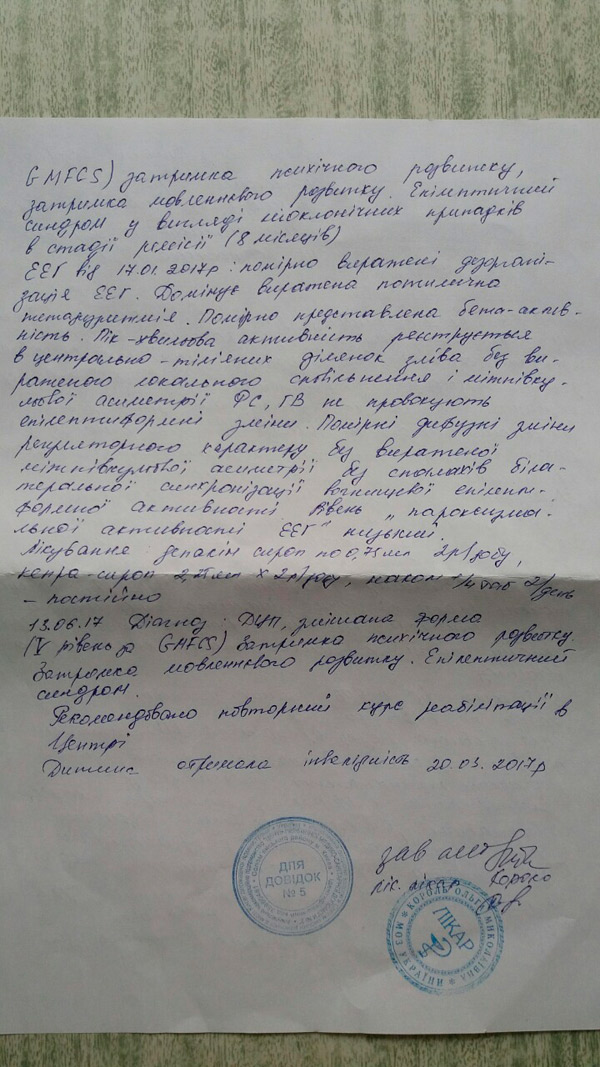 GMFCS) затримка психічного розвитку,
затримка мовленнєвого розвитку. Епілептичний
синдром у вигляді міоклонічних припадків
в стадії ремісії (8 місяців)
ЕЕГ від 17.01.2017р: помірно виражені дезоргані-
зація ЕЕГ. Домінує виражена потилична
Помірно представлена бета-актив-
ність. Пік-хвильова активність реєструється
в центрально-тім'яних ділянок зліва без ви-
раженого локального сповільнення і міжпівку-
льової асиметрії ФС, ГВ не провокують
епілептиформні зміни. Помірні дифузні зміни
регуляторного характеру без вираженої
міжпівкульової асиметрії без спалахів біла-
теральної синхронізації вогнищевої епілепти-
формної активності. Рівень „пароксизма-
льної активності ЕЕГ" низький.
Лікування депакін сироп по 0,75мл 2р/добу,
кепра-сироп 2р/добу, 1/4 таб 2/день
- постійно
13.06.17 Діагноз: ДЦП, змішана форма
(V рівень за GMFCS) Затримка психічного розвитку.
Затримка мовленнєвого розвитку. Епілептичний
синдром.
Рекомендовано повторний курс реабілітації в
Центрі
Дитина отримала інвалідність 20.03.2017р
ДЛЯ
ДОВІДОК
№ 5
зав
лік. лікар Король
О.М.
КОРОЛЬ ОЛЬГА МИКОЛАЇВНА * МОЗ УКРАЇНИ *
ЛІКАР